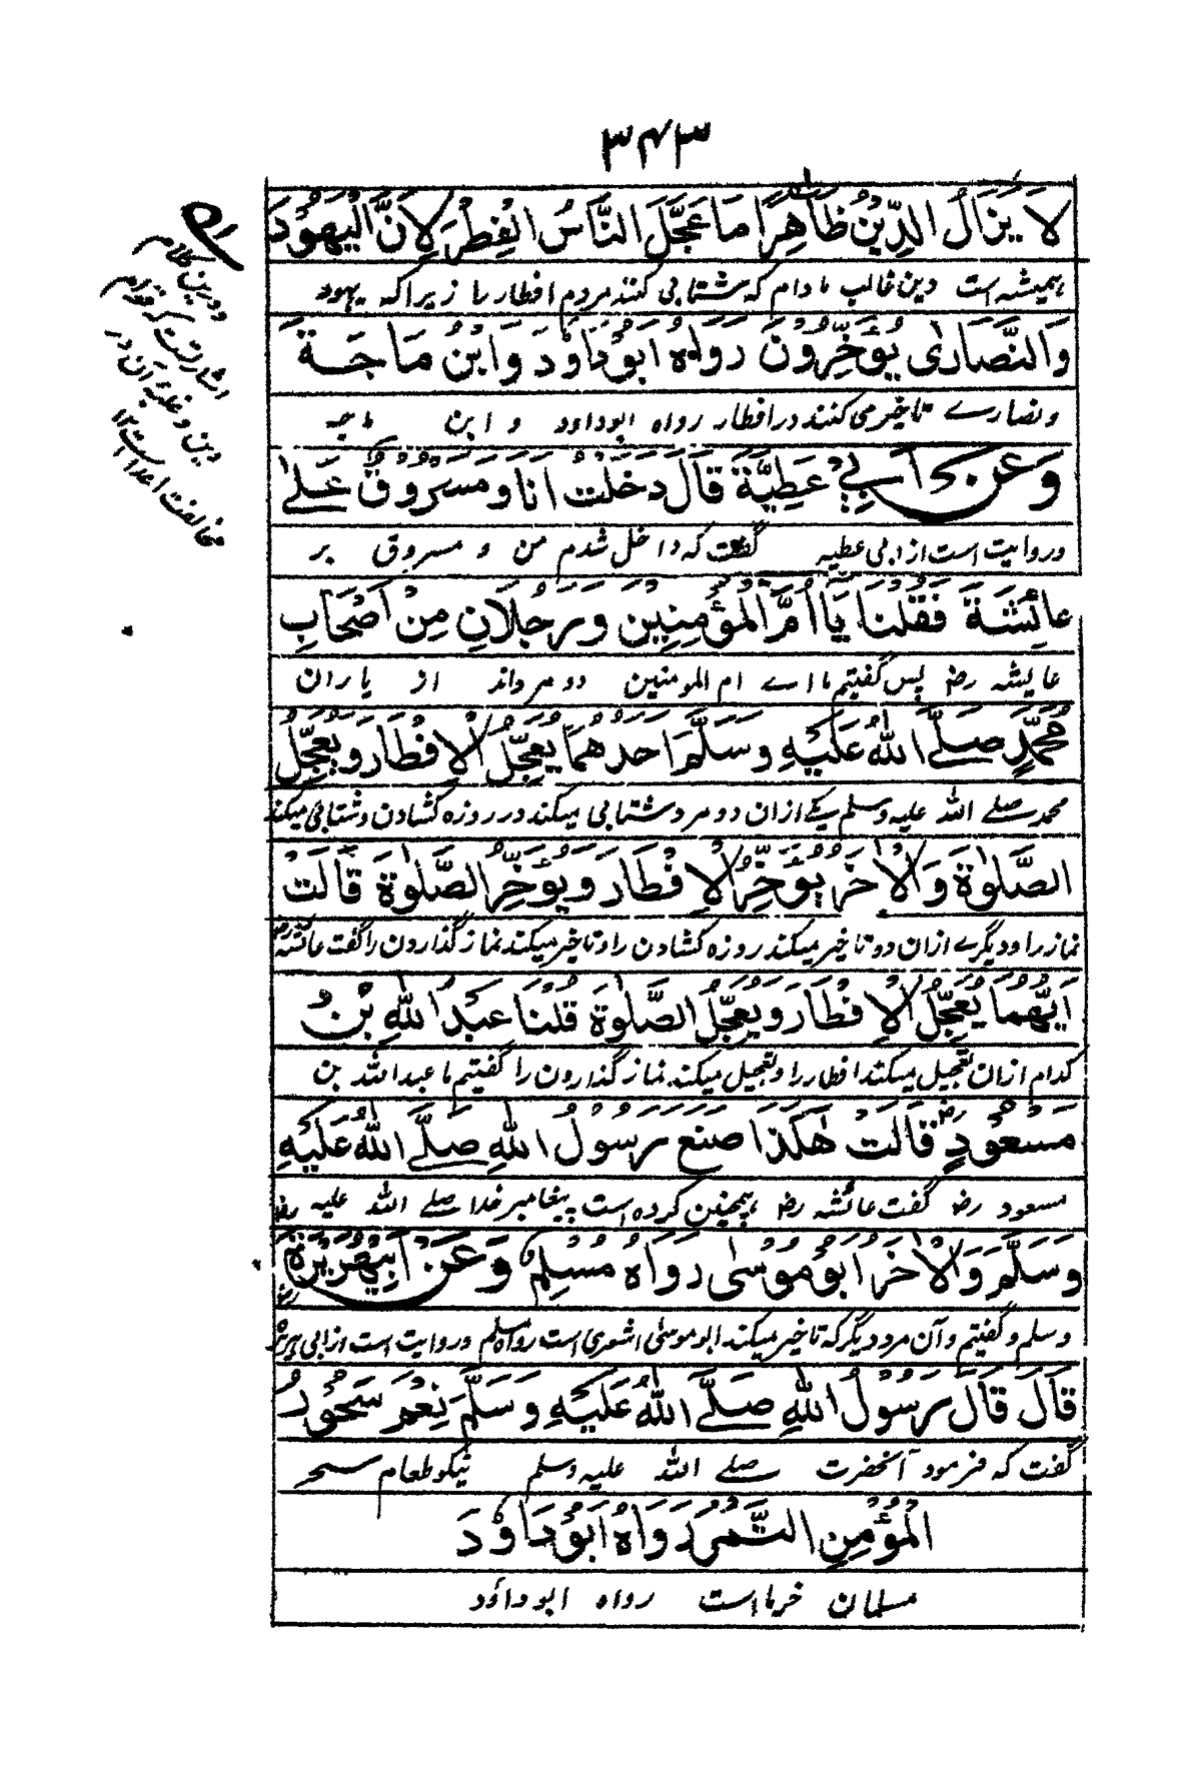 ۳۴۳
لَا يَزَالُ الدِّينُ ظَاهِرًا مَا عَجَّلَ النَّاسُ الْفِطْرَ لِأَنَّ الْيَهُودَ
همیشه است دین غالب مادام که شتابی کنند مردم افطار را زیرا که یهود
وَالنَّصَارٰى يُؤَخِّرُونَ رَوَاهُ أَبُو دَاوُدَ وَابْنُ مَاجَةَ
ونصارے تاخیر می کنند در افطار رواه ابوداود و ابن ماجه
وَعَنْ أَبِي عَطِيَّةَ قَالَ دَخَلْتُ أَنَا وَمَسْرُوقٌ عَلٰى
وروایت است از ابی عطیه گفت که داخل شدم من و مسروق بر
عَائِشَةَ فَقُلْنَا يَا أُمَّ الْمُؤْمِنِينَ رَجُلَانِ مِنْ أَصْحَابِ
عایشه رضـ پس گفتیم ما اے ام المومنین دو مرد اند از یاران
مُحَمَّدٍ صَلَّے اللهُ عَلَيْهِ وَسَلَّمَ أَحَدُهُمَا يُعَجِّلُ الْإِفْطَارَ وَيُعَجِّلُ
محمد صلے الله علیه وسلم یکے ازان دو مرد شتابی میکند در روزه کشادن و شتابی میکند
الصَّلٰوةَ وَالْآخَرُ يُؤَخِّرُ الْإِفْطَارَ وَيُؤَخِّرُ الصَّلٰوةَ قَالَتْ
نماز را و دیگرے ازان دو تاخیر میکند روزه کشادن را و تاخیر میکند نماز گذارون را گفت عائشه رضـ
أَيُّهُمَا يُعَجِّلُ الْإِفْطَارَ وَيُعَجِّلُ الصَّلٰوةَ قُلْنَا عَبْدُ اللهِ بْنُ
کدام ازان تعجیل میکند افطار را و تعجیل میکند نماز گذارون را گفتیم ما عبد الله بن
مَسْعُودٍ رضـ قَالَتْ هٰكَذَا صَنَعَ رَسُولُ اللهِ صَلَّے اللهُ عَلَيْهِ
مسعود رضـ گفت عائشه رضـ همچنین کرده است پیغامبر خدا صلے الله علیه
وَسَلَّمَ وَالْآخَرُ أَبُو مُوسٰى رَوَاهُ مُسْلِمٌ وَعَنْ أَبِي هُرَيْرَةَ رضـ
وسلم و گفتیم و آن مرد دیگر که تاخیر میکند ابو موسٰی اشعری است رواه مسلم وروایت است از ابی هریره
قَالَ قَالَ رَسُولُ اللهِ صَلَّے اللهُ عَلَيْهِ وَسَلَّمَ نِعْمَ سَحُورُ
گفت که فرمود آنحضرت صلے الله علیه وسلم نیکو طعام سحر
الْمُؤْمِنِ التَّمْرُ رَوَاهُ أَبُو دَاوُدَ
مسلمان خرما است رواه ابو داؤد
ودرین کلام
اشارتست که قوام
دین و غلبهٔ آن در
مخالفت اعداست ۱۲